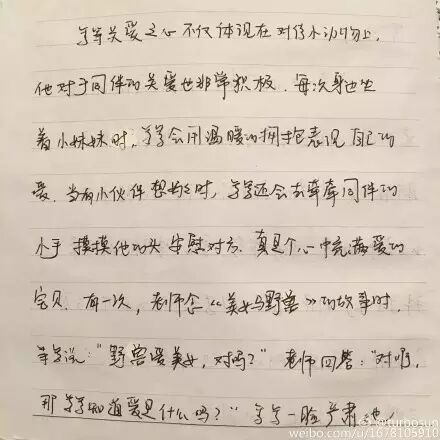 等等关爱之心不仅体现在对待小动物上,
他对于同伴的关爱也非常积极.每次身边坐
着小妹妹时,等等会用温暖的拥抱表现自己的
爱.当有小伙伴想妈妈时,等等还会去牵牵同伴的
小手 摸摸他的头 安慰对方.真是个心中充满爱的
宝贝.有一次,老师在《美女与野兽》的故事时,
等等说:"野兽爱美女,对吗?" 老师回答:"对啊,
那等等知道爱是什么吗?" 等等一脸严肃地,
@turbosun
weibo.com/u/1678105910